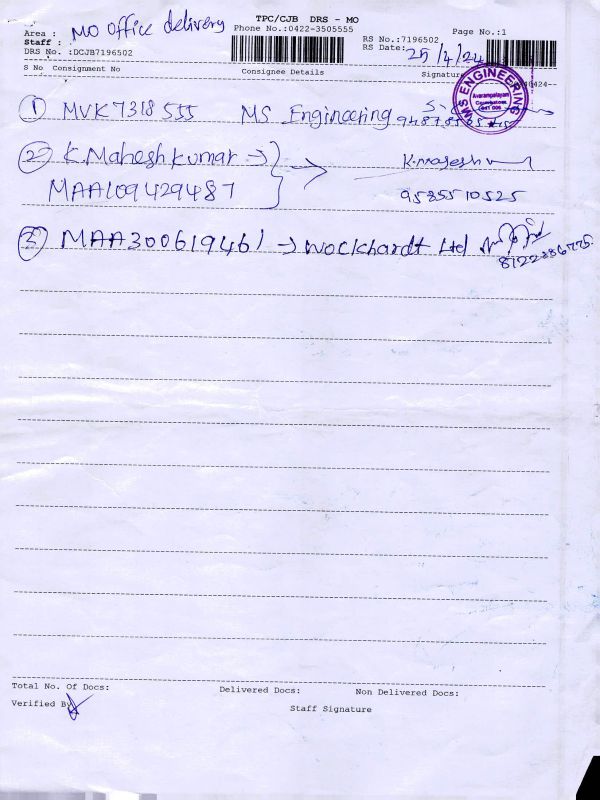 TPC/CJB DRS - MO
Area : MO office delivery
Phone No.:0422-3505555
Page No.:1
Staff :
RS No.:7196502
DRS No. :DCJB7196502
RS Date: 25/4/24
S No Consignment No Consignee Details Signature
MS ENGINEERING
Avarampalayam
Coimbatore
641 006
① MVK7318555 MS Engineering
② K.Maheshkumar →
MAA109429487
9585510525
③ MAA300619461 → Wockhardt Ltd
8122386775.
Total No. Of Docs: Delivered Docs: Non Delivered Docs:
Verified By
Staff Signature